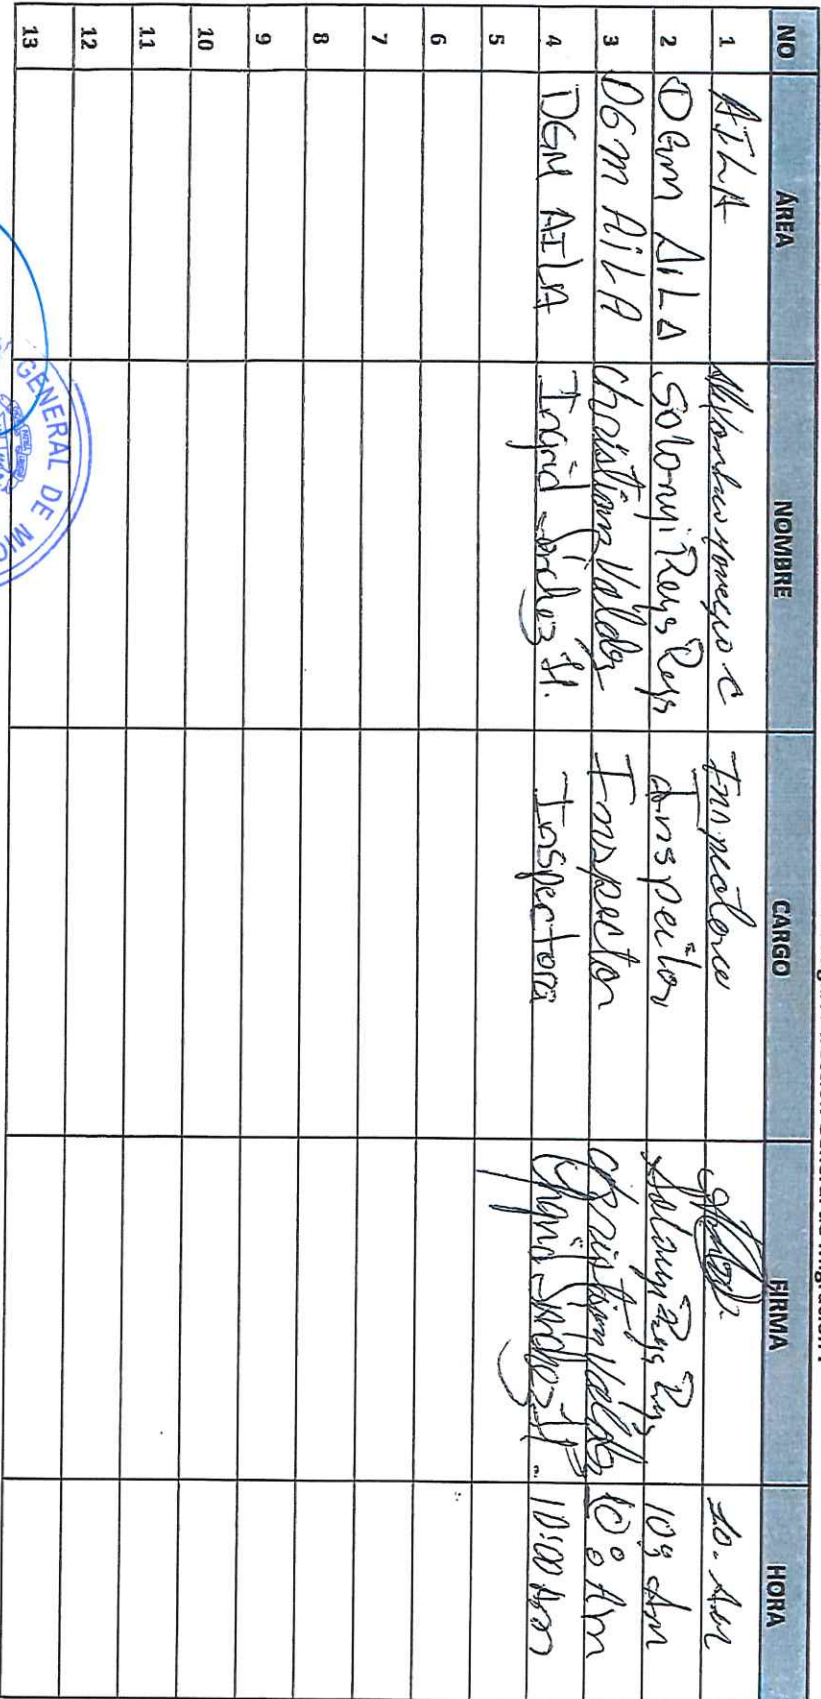 NO ÁREA NOMBRE CARGO FIRMA HORA
1 AILA C 10. AM
2 DGM AILA Solanyi Reys Reys Inspector Solanyi Reys Reys 10: AM
3 DGM AILA Christian Valdez Inspector Christian Valdez 10: Am
4 DGM AILA Ingrid Sánchez H. Inspectora Ingrid Sánchez H. 10:00 Am
5
6
7
8
9
10
11
12
13
GENERAL DE MIG